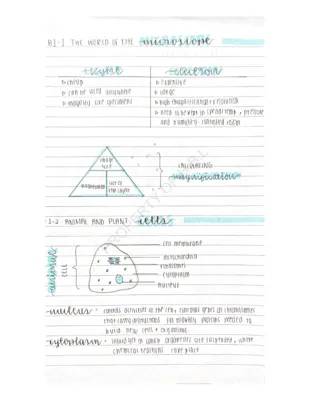 B1-1 THE WORLD OF THE microscope
light
electron
cheap
expensive
can be used anywhere
large
magnify live specimens
high magnification & resolution
need to be kept in temperature, pressure
and humidity controlled room
image size
magnification
size of the object
CALCULATING
magnification
PROPERTY OF
1-2 ANIMAL AND PLANT cells
animal
CELL
cell membrane
mitochondria
ribosomes
cytoplasm
nucleus
nucleus - controls activities of the cell, contains genes on chromosomes
that carry instructions for making proteins needed to
build new cells & organisms
cytoplasm - liquid gel in which organelles are suspended, where
chemical reactions take place